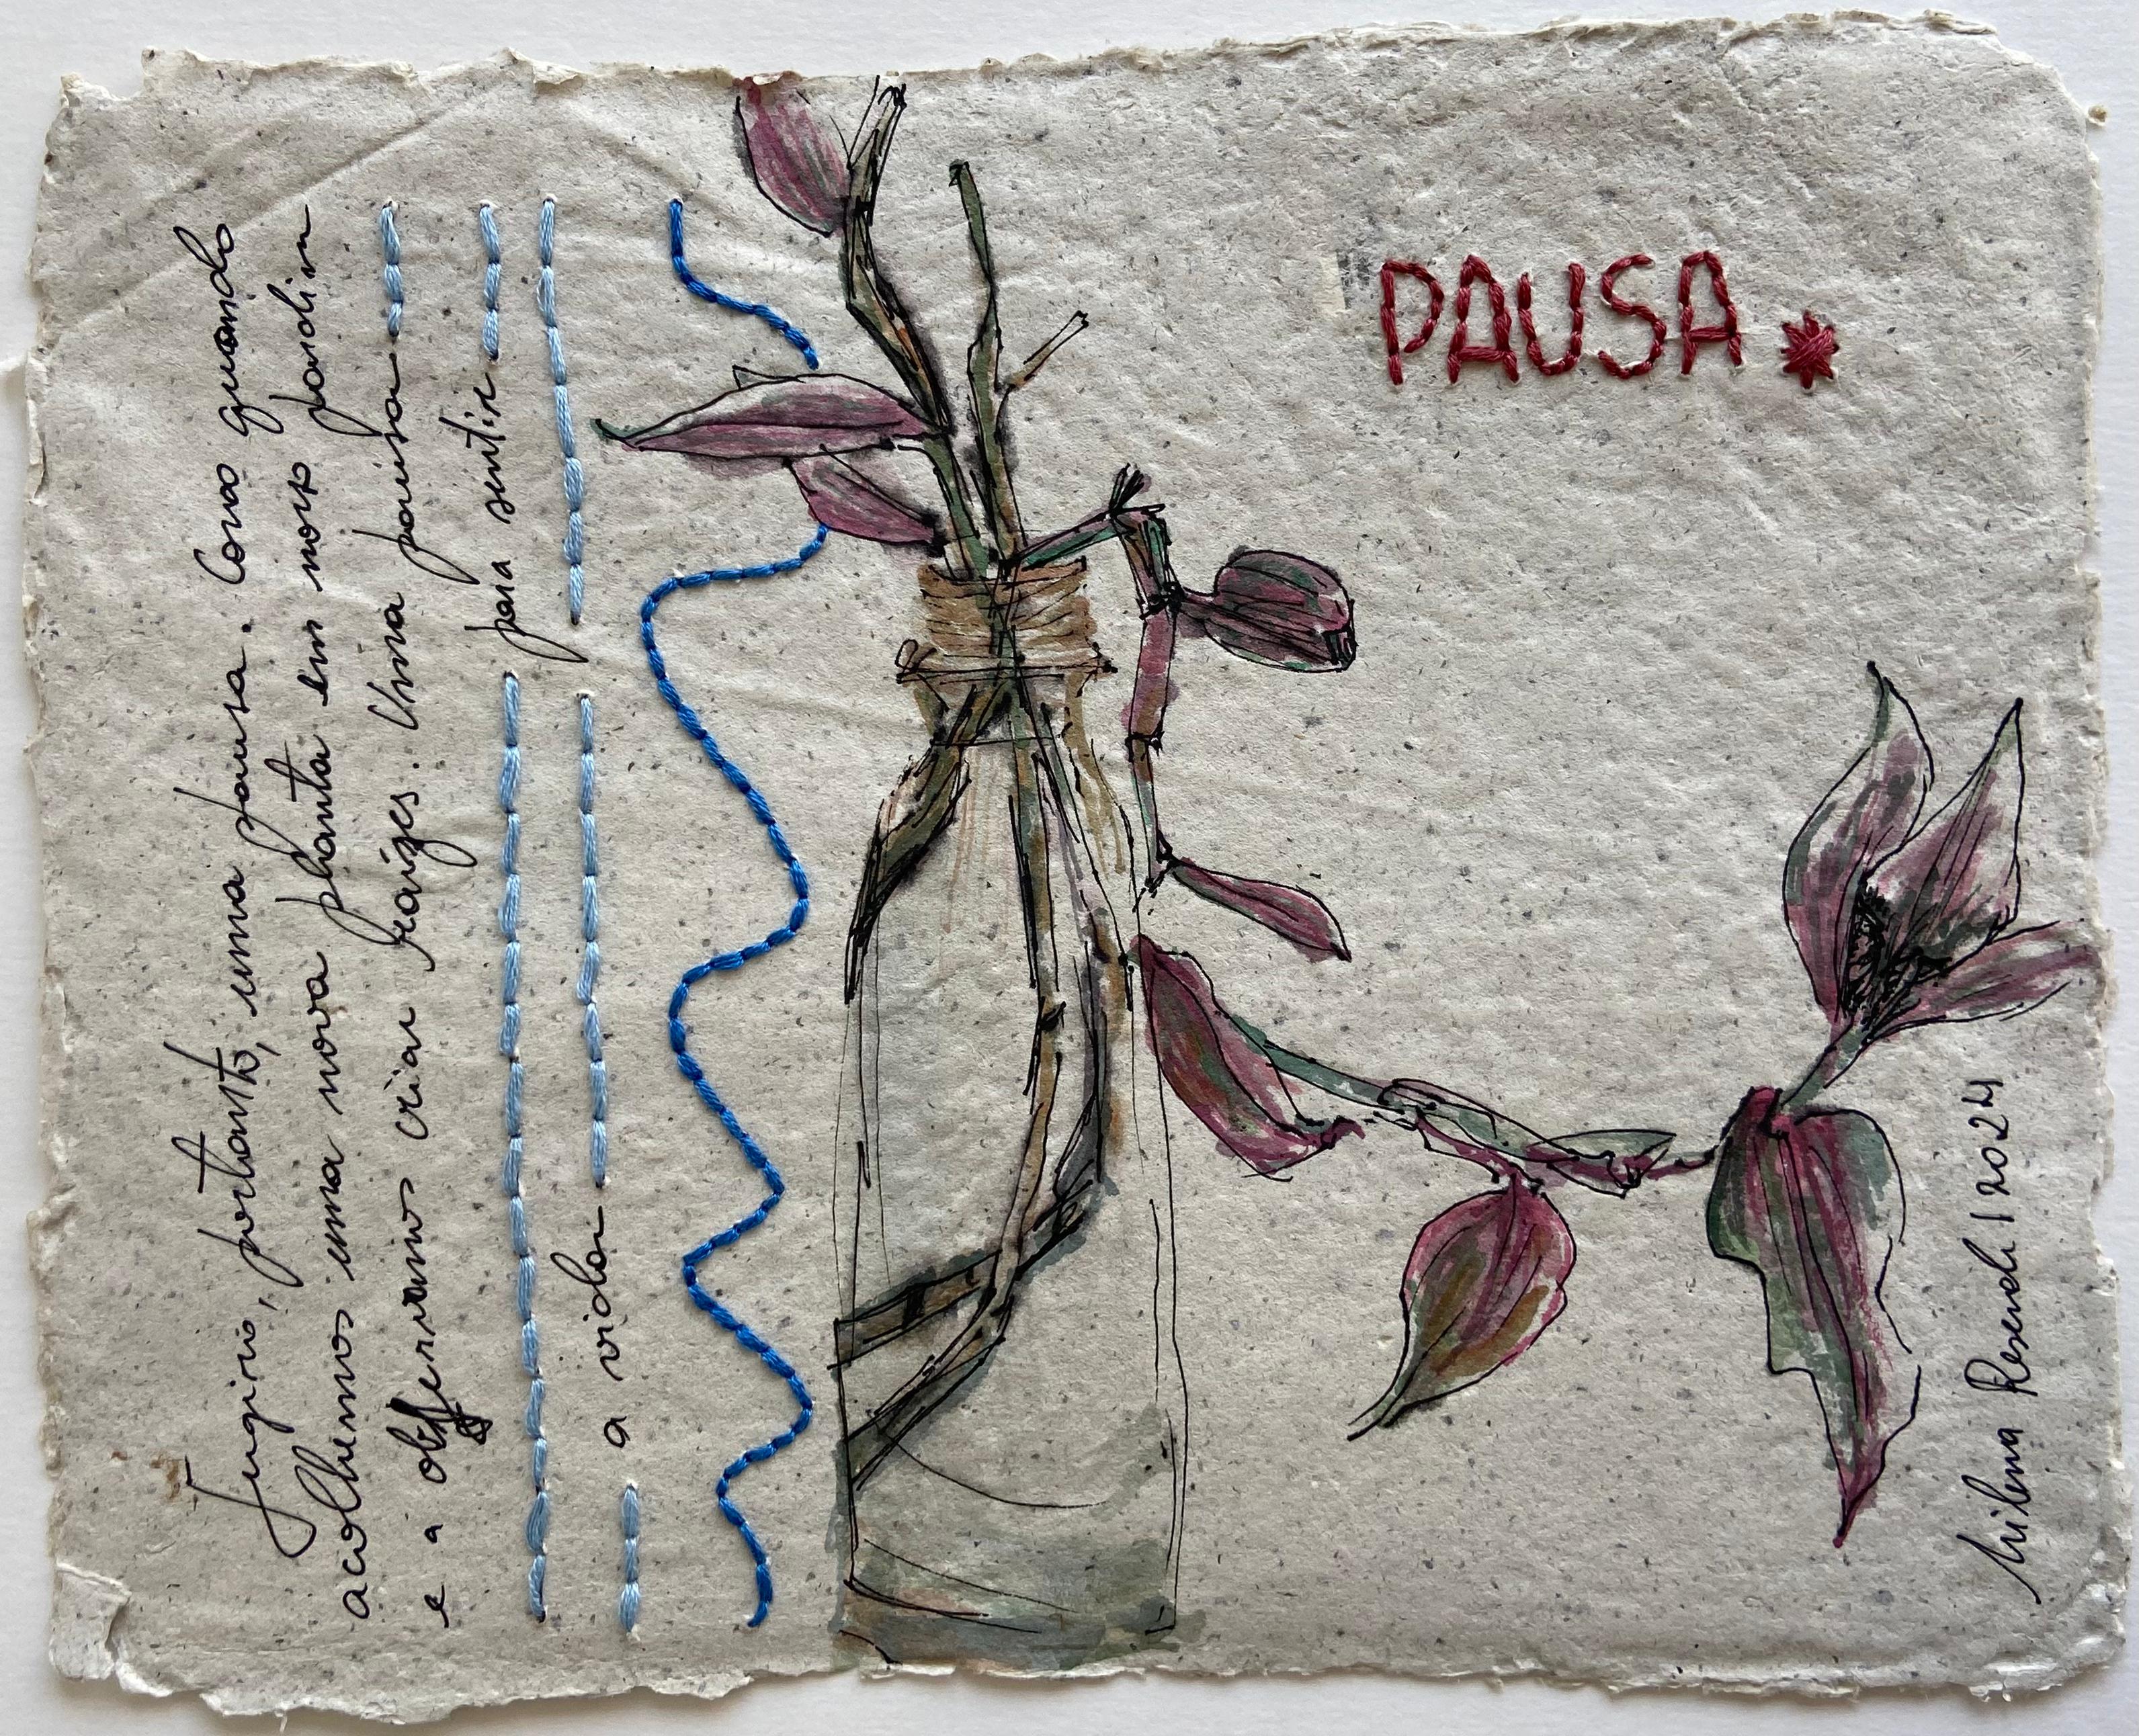 Sugiro, portanto, uma pausa. Como quando
acolhemos uma nova planta em nosso jardim
e a observamos criar raízes. Uma pausa
para sentir
a vida
PAUSA
Resende | 2024